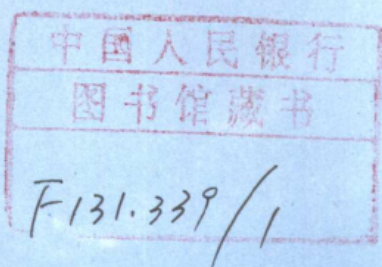 中国人民银行
图书馆藏书
F131.339/1